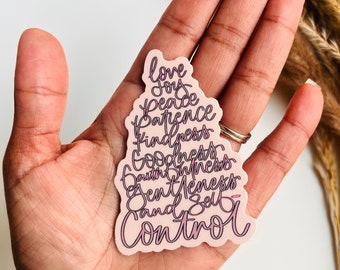 love
Joy
Peace
Patience
Kindness
Goodness
Faithfulness
Gentleness
and Self
Control